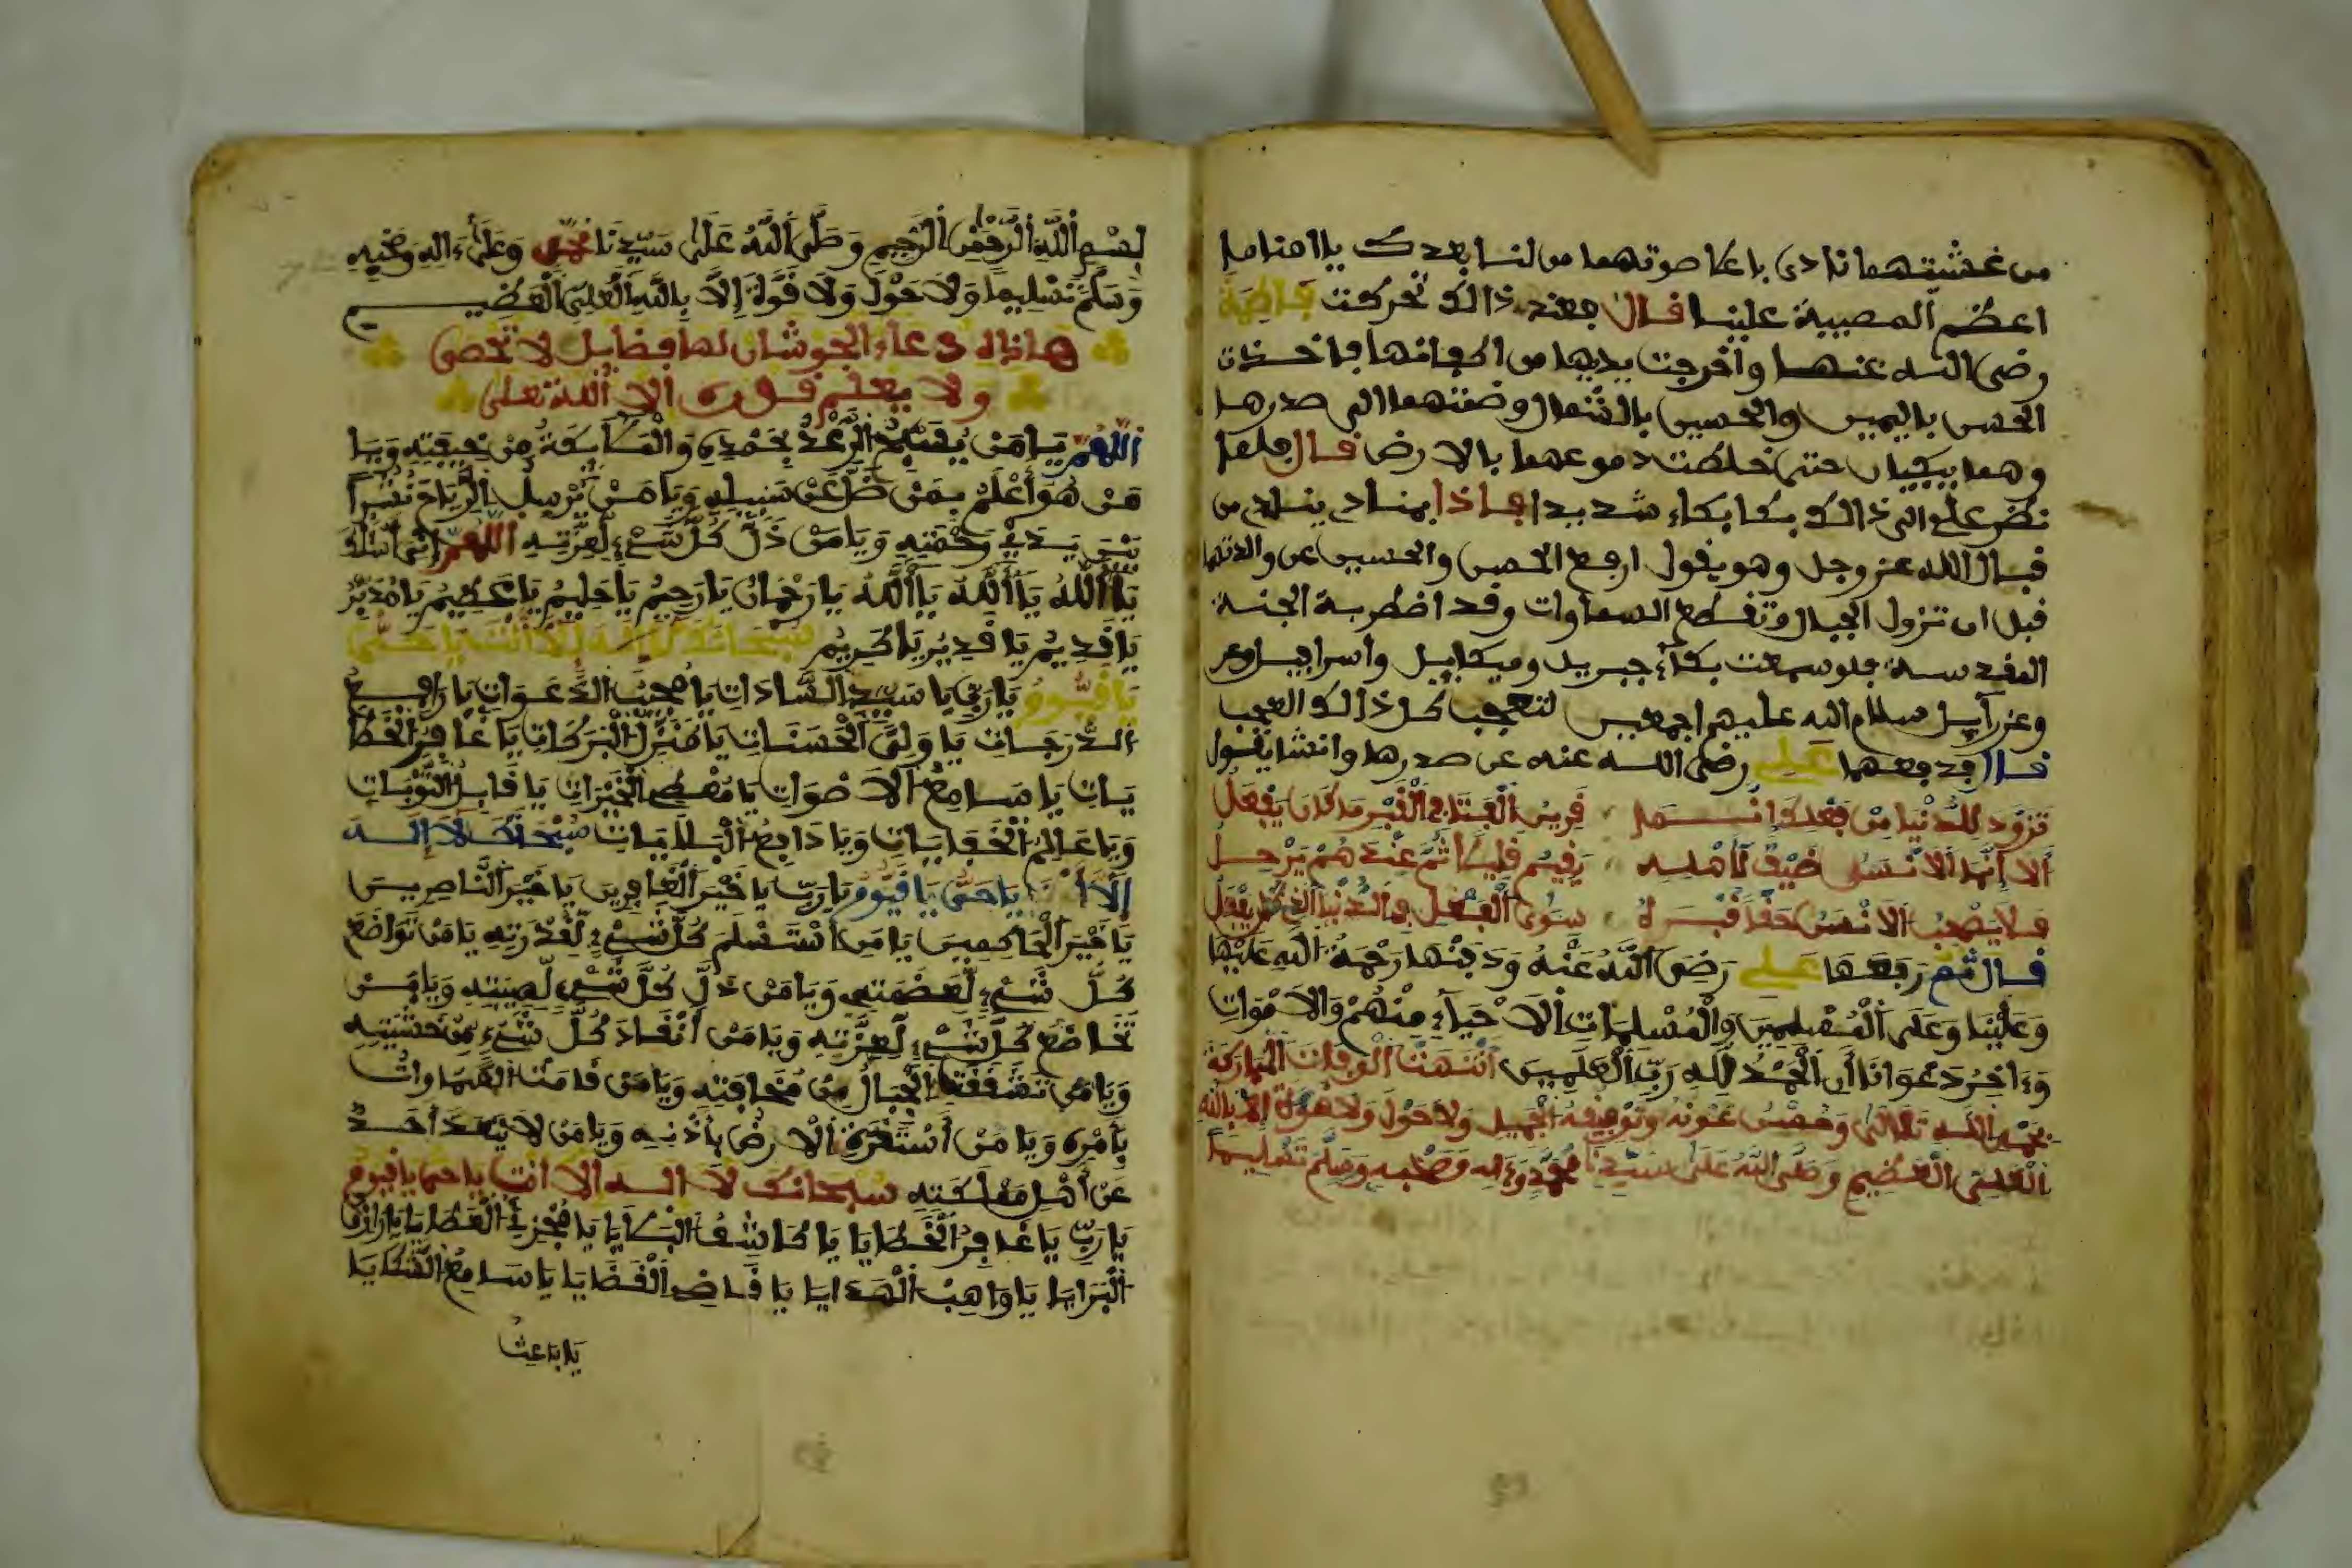 من غشيتهما نادى باعلا صوتهما من لنا بعدك يا امنا ما
اعظم المصيبة علينا قال فعند ذالك تحركت فاطمة
رضى الله عنها وأخرجت يديها من اكفانها فاخذت
الحسن باليمين والحسين بالشمال وضمتهما الى صدرها
وهما يبكيان حتى خلطت دموعهما بالارض قال فلما
نظر علي الى ذالك بكا بكاء شديدا فاذا بمناد ينادى من
قبل الله عز وجل وهو يقول ارفع الحسن والحسين عن والدتهما
قبل ان تزول الجبال وتقطع السماوات وقد اضطربة الجنة
القدسة فلو سمعت بكاء جبريل وميكايل واسرافيل وعز
وعزرآيل سلام الله عليهم اجمعين لتعجب كل ذالك العجب
قال فدفعهما علي رضى الله عنه عن صدرها وانشا يقول
تزود للدنيا من فعلك انما قرين الفتا في القبر ما كان يفعل
ألا أنما الانسان ضيف لأهله يقيم قليلا ثم عندهم يرحل
فلا يصحب الانسن حقا قبره سوى الفعل في الدنيا الذي كان يفعل
قال ثم رفعها علي رضى الله عنه ودفنها رحمة الله عليها
وعلينا وعلى المسلمين والمسلمات الاحياء منهم والاموات
وءاخر دعوانا أن الحمد لله رب العلمين انتهت الوفات المباركة
بحمد الله تعالى وحسن عونه وتوفيقه الجميل ولا حول ولا قوة إلا بالله
العلى العظيم وصلى الله على سيدنا محمد وءاله وصحبه وسلم تسليما
بسم الله الرحمن الرحيم وصلى الله على سيدنا محمد وعلى ءاله وصحبه
وسلم تسليما ولا حول ولا قوة إلا بالله العلى العظيم
هاذا دعاء الجوشان لها فضايل لا تحصى
ولا يعلم قدره الا الله تعلى
اللهم يا من يسبح الرعد بحمده والملآئكة من خيفته ويا
من هو أعلم بمن ضل عن سبيله ويا من يرسل الرياح نشرا
بين يدي رحمته ويا من ذل كل شيء لعزته اللهم إنى أسئلك
يا ألله يا ألله يا ألله يا رحمان يا رحيم يا حليم يا عظيم يا مدبر
يا قديم يا قدير يا كريم سبحانك لا اله الا أنت يا حى
يا قيوم يا ربى يا سيد السادات يا مجيب الدعوات يا رافع
الدرجات يا ولى الحسنات يا منزل البركات يا غافر الخطا
يات يا سامع الاصوات يا معطى الخيرات يا قابل التوبات
ويا عالم الخفيات ويا دافع البليات سبحانك لا إله
إلا أنت يا حى يا قيوم يا رب يا خير الغافرين يا خير الناصرين
يا خير الحاكمين يا من استسلم كل شيء لقدرته يا من تواضع
كل شيء لعظمته ويا من ذل كل شيء لهيبته ويا من
تخاضع كل شيء لعزته ويا من انقاد كل شيء من خشيته
ويا من تشققت الجبال من مخافته ويا من قامت السماوات
بأمره ويا من استقرت الارض بأذنه ويا من لا يعتد أحد
عن أهل مملكته سبحانك لا اله الا انت يا حى يا قيوم
يا رب يا غافر الخطايا يا كاشف البلايا يا مجزى العطايا يا رازق
البرايا يا واهب الهدايا يا قاضى القضايا يا سامع الشكايا
يا باعث